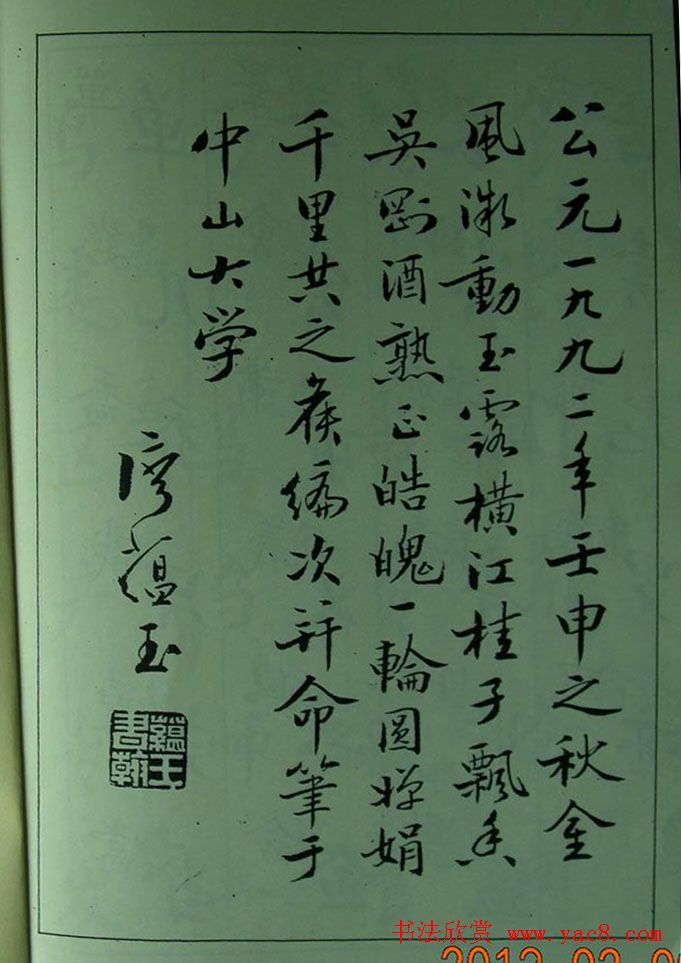 公元一九九二年壬申之秋金
风微動玉露横江桂子飄香
吳剛酒熟正皓魄一輪圆婵娟
千里共之矣编次并命筆于
中山大学
廖蕴玉
蘊玉書翰
书法欣赏 www.yac8.com